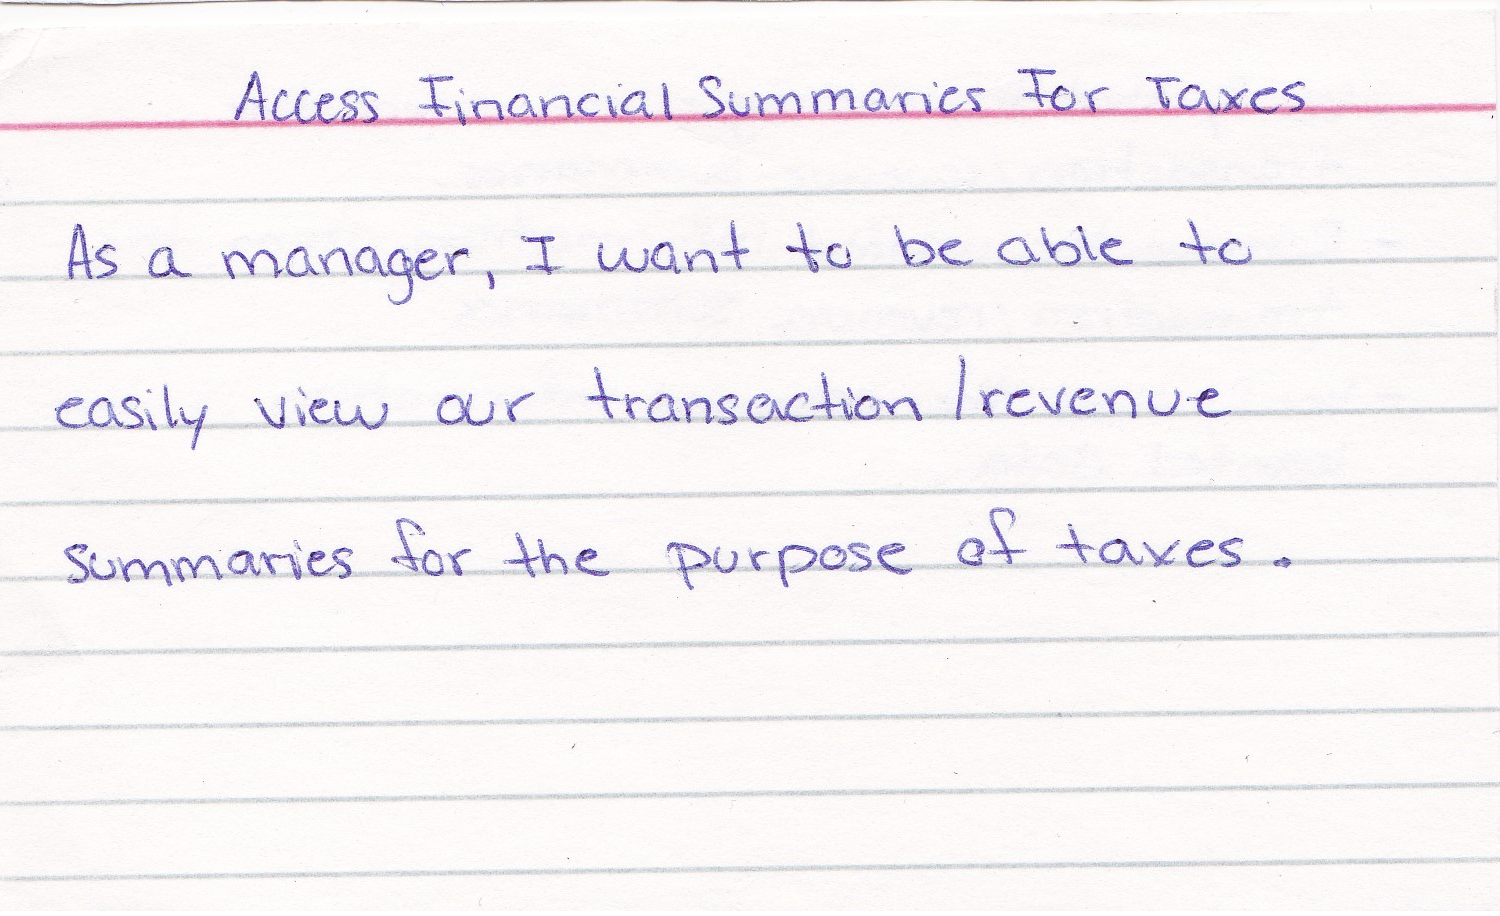 Access Financial Summaries For Taxes
As a manager, I want to be able to
easily view our transaction/revenue
summaries for the purpose of taxes.